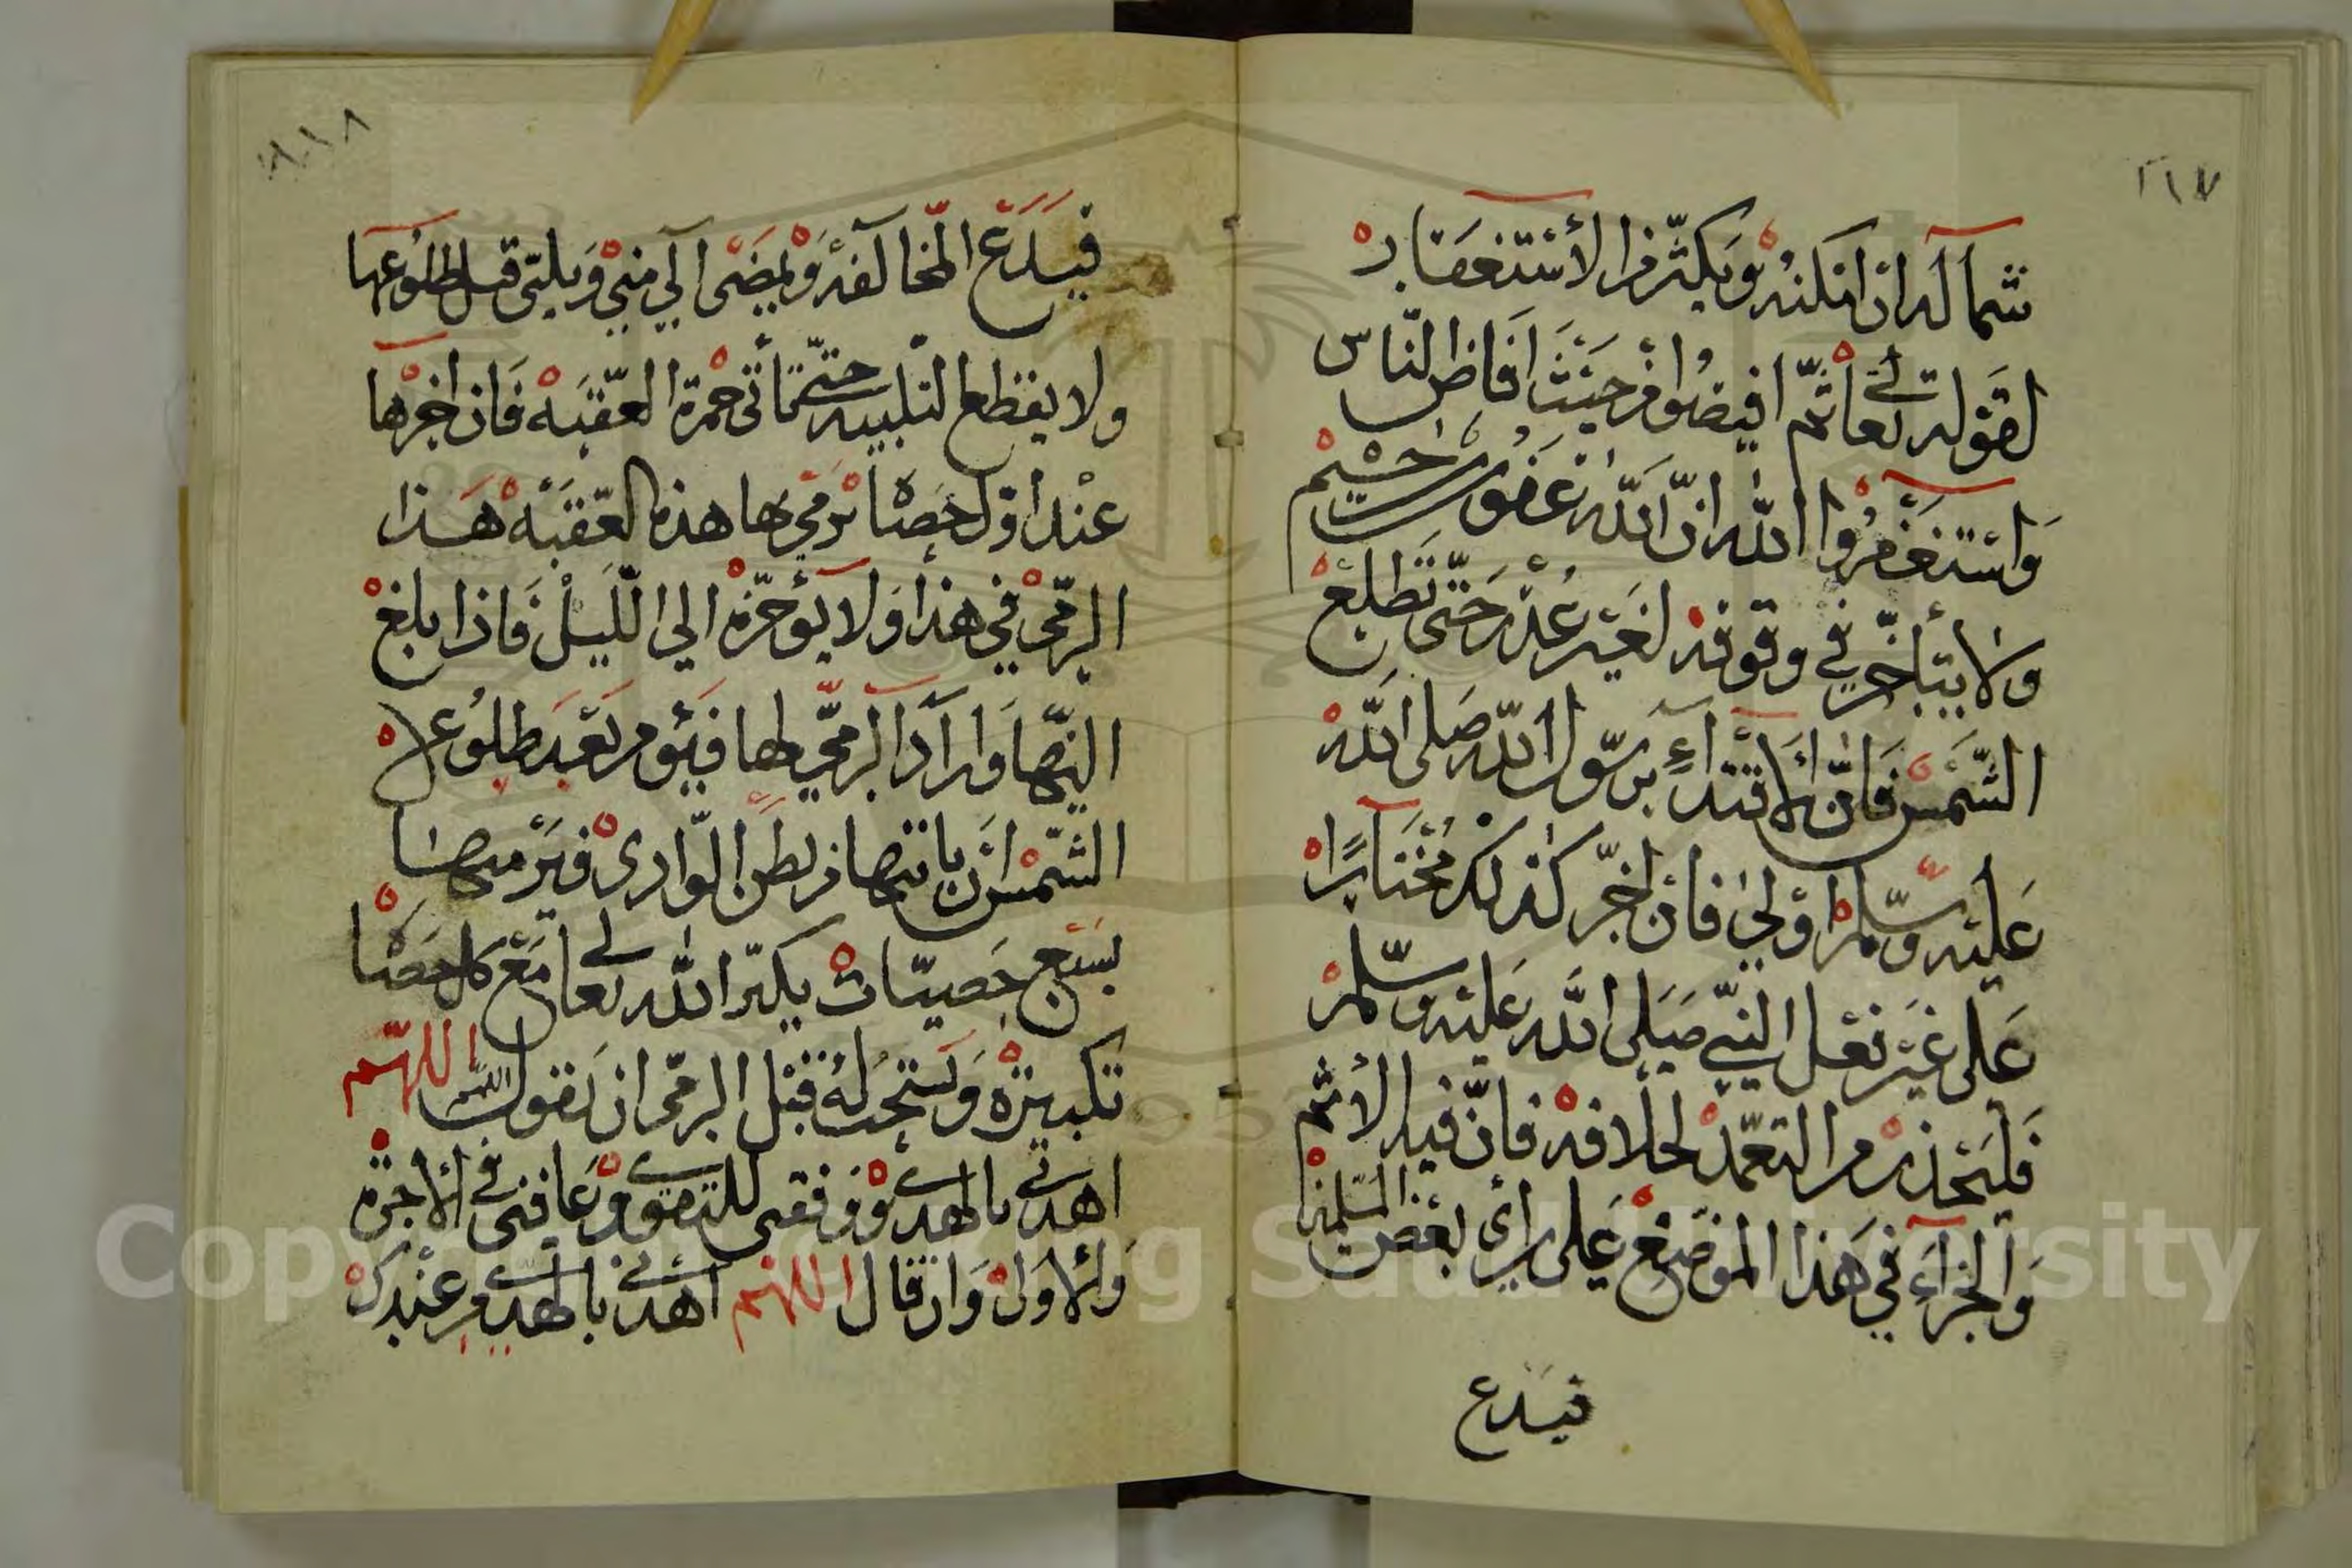 ٢١٧
شماله ان امكنه ويكثر من الاستغفار
لقوله تعالى ثم افيضوا من حيث افاض الناس
واستغفروا الله ان الله غفور رحيم
ولا يتأخر في وقوفه لغير عذر حتى تطلع
الشمس فان الاقتداء برسول الله صلى الله
عليه وسلم اولى فان اخر كذلك مختارا
على غير فعل النبي صلى الله عليه وسلم
فليحذر من التعمد لخلافه فان فيه الاثم
والجزاء في هذا الموضع على راى بعض المسلمين
فيدع
٢١٨
فيدع المخالفه ويمضى الى منى ويلبى قبل طلوعها
ولا يقطع التلبيه حتى تأتى جمرة العقبه فان اخرها
عند اول حصاة يرمى بها هذه العقبه هذا
الرمى في هذا ولا يؤخره الى الليل فاذا بلغ
النها واراد الرمى طها فيؤمر بعد طلوع
الشمس ان ياتيها من بطن الوادى فيرميها
بسبع حصيات يكبر الله تعالى مع كل حصاة
تكبيرة ويستحب له قبل الرمى ان يقول اللهم
اهدنى بالهدى ووفقنى للتقوى وعافنى في الاخرة
والاولى وان قال اللهم اهدنى بالهدى من عندك
Copyright © King Saud University